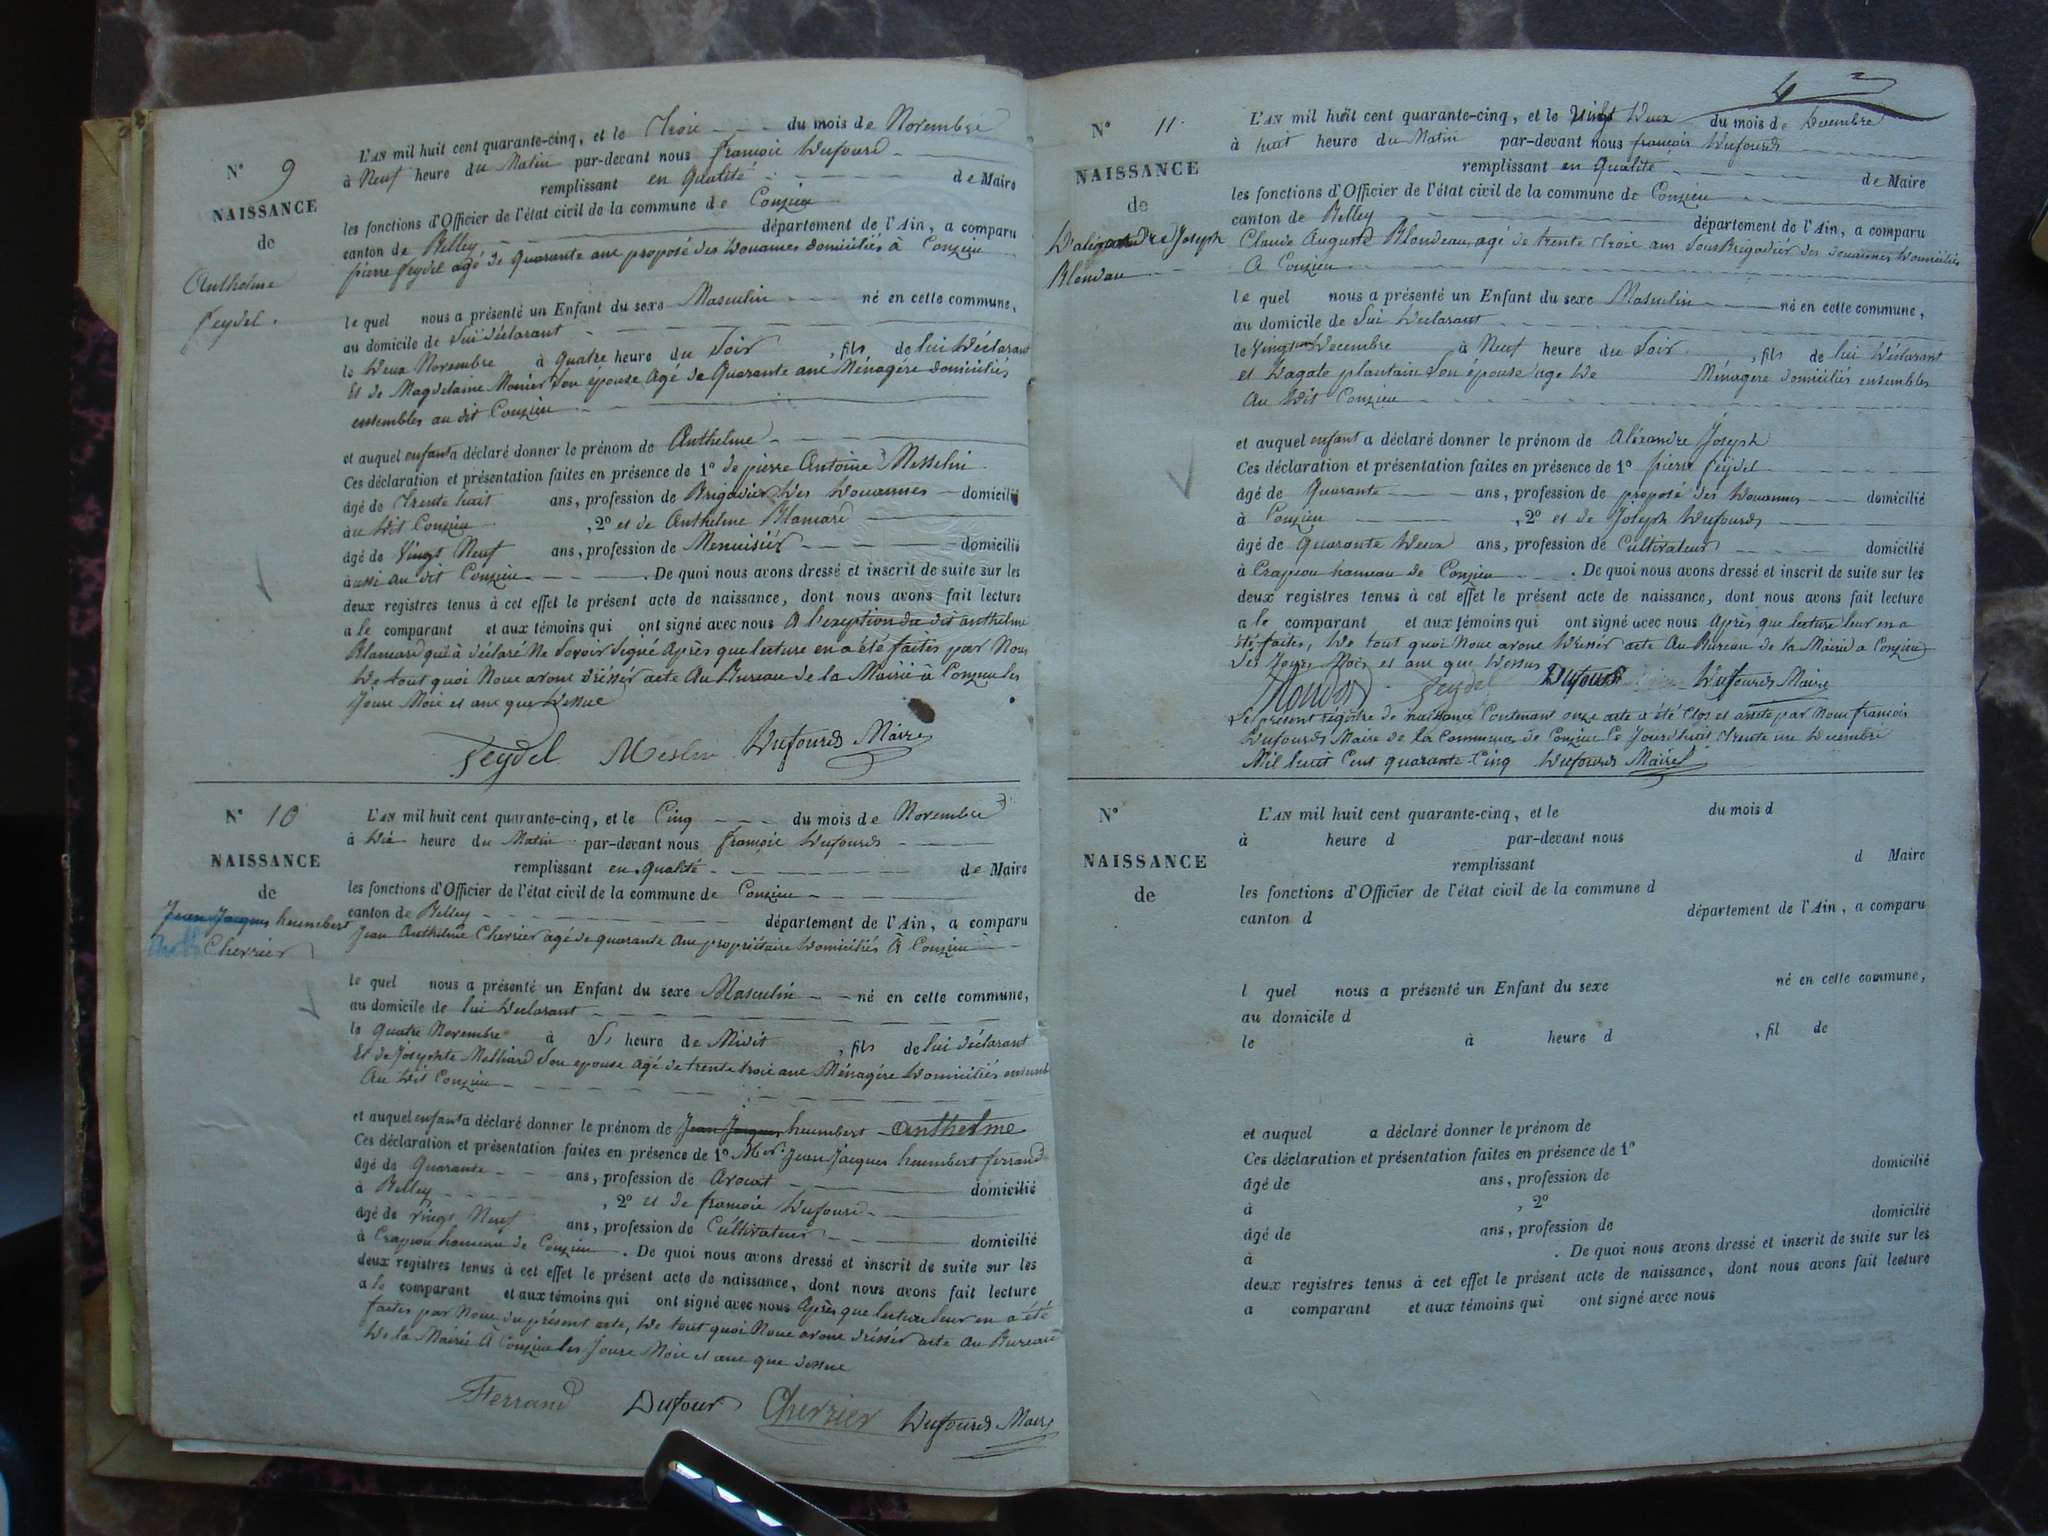 N° 9
NAISSANCE
de
Anthelme
feydel.
L'AN mil huit cent quarante-cinq, et le Trois du mois de Novembre
à Neuf heure du Matin par-devant nous françois Dufourd
remplissant en Qualité de Maire
les fonctions d'Officier de l'état civil de la commune de Conzieu
canton de Belley département de l'Ain, a comparu
pierre feydel agé de quarante ans proposé des Douannes domiciliés à Conzieu
le quel nous a présenté un Enfant du sexe Masculin né en cette commune,
au domicile de Lui déclarant
le Deux Novembre à quatre heure du Soir, fils de lui Déclarant
Et de Magdelaine Monier Son épouse agé de Quarante ans Ménagère domiciliés
ensembles au dit Conzieu
et auquel enfant a déclaré donner le prénom de Anthelme
Ces déclaration et présentation faites en présence de 1° de pierre Antoine Messelin
âgé de Trente huit ans, profession de Brigadier Des Douannes domicilié
à au Dit Conzieu, 2° et de Anthelme Blamard
âgé de Vingt Neuf ans, profession de Menuisier domicilié
à aussi au dit Conzieu. De quoi nous avons dressé et inscrit de suite sur les
deux registres tenus à cet effet le présent acte de naissance, dont nous avons fait lecture
a le comparant et aux témoins qui ont signé avec nous A l'exception du dit anthelme
Blamard qui à déclaré Ne Savoir Signé Après que lecture en a été faites par Nous
De tout quoi Nous avons Drésser acte Au Bureau de la Mairie à Conzieu les
Jours Mois et ans que Dessus
feydel Meslin Dufourd Maire
N° 10
NAISSANCE
de
Jean Jacques humbert
Cherrier
L'AN mil huit cent quarante-cinq, et le Cinq du mois de Novembre
à Dix heure du Matin par-devant nous françois Dufourd
remplissant en Qualité de Maire
les fonctions d'Officier de l'état civil de la commune de Conzieu
canton de Belley département de l'Ain, a comparu
Jean Anthelme Cherrier agé de quarante Ans propriétaire Domiciliés À Conzieu
le quel nous a présenté un Enfant du sexe Masculin né en cette commune,
au domicile de lui Declarant
le Quatre Novembre à heure de Midit, fils de lui déclarant
Et de Josephte Molliard Son épouse agé de trente trois ans Ménagère Domiciliés ensemble
Au Dit Conzieu
et auquel enfant a déclaré donner le prénom de Jean Jacques humbert anthelme
Ces déclaration et présentation faites en présence de 1° Mr. Jean Jacques humbert ferrand
âgé de Quarante ans, profession de Avocat domicilié
à Belley, 2° et de françois Dufourd
âgé de vingt Neuf ans, profession de Cultivateur domicilié
à Crapeou hameau de Conzieu. De quoi nous avons dressé et inscrit de suite sur les
deux registres tenus à cet effet le présent acte de naissance, dont nous avons fait lecture
a le comparant et aux témoins qui ont signé avec nous Après que lecture leur en a été
faites par Nous du présent acte, De tout quoi Nous avons drésser acte Au Bureau
De la Mairie À Conzieu les Jours Mois et ans que dessus
Ferrand Dufour Cherrier Dufourd Maire
4
N° 11.
NAISSANCE
de
D'alexandre Joseph
Blondeau
L'AN mil huit cent quarante-cinq, et le Vingt Deux du mois de Decembre
à huit heure du Matin par-devant nous françois Dufourd
remplissant en Qualité de Maire
les fonctions d'Officier de l'état civil de la commune de Conzieu
canton de Belley département de l'Ain, a comparu
Claude Auguste Blondeau agé de trente Trois ans Sous Brigadier des douannes Domiciliés
A Conzieu
le quel nous a présenté un Enfant du sexe Masculin né en cette commune,
au domicile de Lui Declarant
le Vingt un Decembre à Neuf heure du Soir, fils de lui Déclarant
et D'agate plantain Son épouse age De Ménagere domiciliés ensembles
Au Dit Conzieu
et auquel enfant a déclaré donner le prénom de Aléxandre Joseph
Ces déclaration et présentation faites en présence de 1° pierre feydel
âgé de Quarante ans, profession de proposé des Douannes domicilié
à Conzieu, 2° et de Joseph Dufourd
âgé de Quarante Deux ans, profession de Cultivateur domicilié
à Crapeou hameau de Conzieu. De quoi nous avons dressé et inscrit de suite sur les
deux registres tenus à cet effet le présent acte de naissance, dont nous avons fait lecture
a le comparant et aux témoins qui ont signé avec nous Après que lecture leur en a
été faites, De tout quoi Nous avons Drésser acte Au Bureau de la Mairie a Conzieu
Les Jours Mois et ans que Dessus
Blondeau feydel Dufourd Dufourd Maire
Le présent régistre de naissance Contenant onze acte a été Clos et arreté par Nous françois
Dufourd Maire de la Commune de Conzieu Ce Jourd'huit Trente un Decembre
Mil huit Cent quarante Cinq Dufourd Maire
N°
NAISSANCE
de
L'AN mil huit cent quarante-cinq, et le du mois d
à heure d par-devant nous
remplissant d Maire
les fonctions d'Officier de l'état civil de la commune d
canton d département de l'Ain, a comparu
l quel nous a présenté un Enfant du sexe né en cette commune,
au domicile d
le à heure d, fil de
et auquel a déclaré donner le prénom de
Ces déclaration et présentation faites en présence de 1°
âgé de ans, profession de domicilié
à, 2°
âgé de ans, profession de domicilié
à. De quoi nous avons dressé et inscrit de suite sur les
deux registres tenus à cet effet le présent acte de naissance, dont nous avons fait lecture
a comparant et aux témoins qui ont signé avec nous